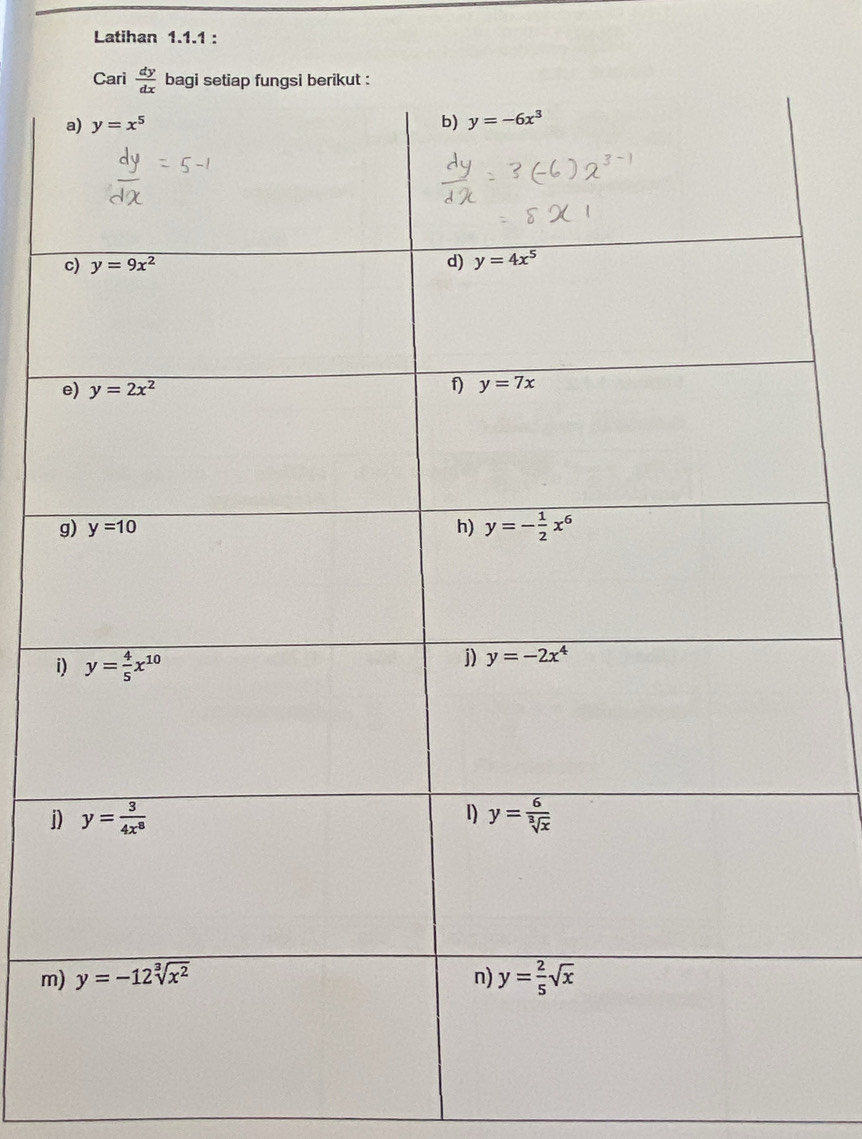 Latihan 1.1.1 :
Cari dy/dx bagi setiap fungsi berikut :
a) y = x⁵
dy/dx = 5-1
b) y = −6x³
dy/dx = 3(-6)x³⁻¹
= 8x1
c) y = 9x²
d) y = 4x⁵
e) y = 2x²
f) y = 7x
g) y =10
h) y = −1/2 x⁶
i) y = 4/5 x¹⁰
j) y = −2x⁴
j) y = 3/4x⁸
l) y = 6/∛x
m) y = −12∛x²
n) y = 2/5 √x